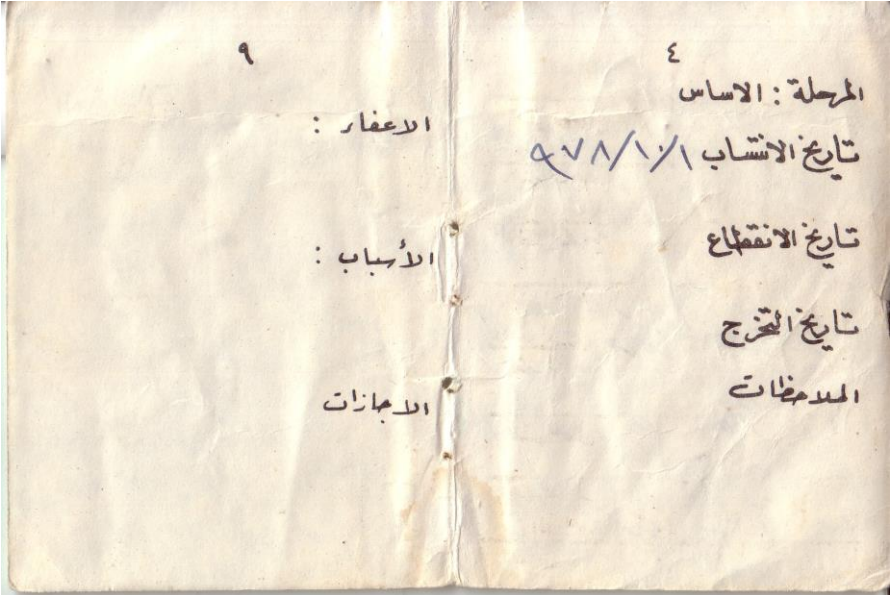 ٤
المرحلة : الاساس
تاريخ الانتساب ١/١٠/٩٧٨
تاريخ الانقطاع
تاريخ التخرج
الملاحظات
٩
الاعفاء :
الأسباب :
الاجازات